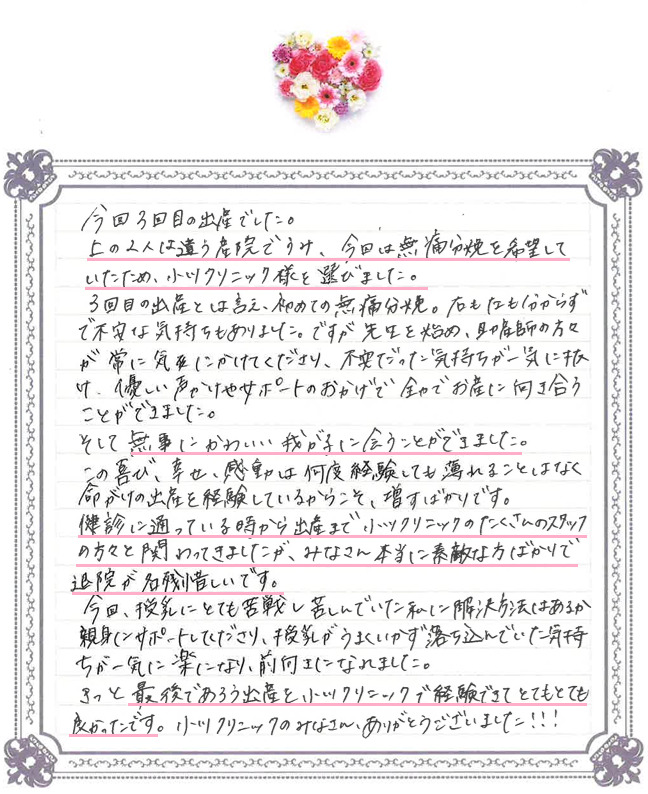 今回3回目の出産でした。
上の2人は違う産院でうみ、今回は無痛分娩を希望して
いたため、小川クリニック様を選びました。
3回目の出産とは言え、初めての無痛分娩。右も左も分からず
で不安な気持ちもありました。ですが先生を始め、助産師の方々
が常に気にかけてくださり、不安だった気持ちが一気に抜
け、優しい声かけやサポートのおかげで全力でお産に向き合う
ことができました。
そして無事にかわいい我が子に会うことができました。
この喜び、幸せ、感動は何度経験しても薄れることはなく
命がけの出産を経験しているからこそ、増すばかりです。
健診に通っている時から出産まで小川クリニックのたくさんのスタッフ
の方々と関わってきましたが、みなさん本当に素敵な方ばかりで
退院が名残惜しいです。
今回、授乳にとても苦戦し苦しんでいた私に解決方法はあるか
親身にサポートしてくださり、授乳がうまくいかず落ち込んでいた気持
ちが一気に楽になり、前向きになれました。
きっと最後であろう出産を小川クリニックで経験できてとてもとても
良かったです。小川クリニックのみなさん、ありがとうございました!!!